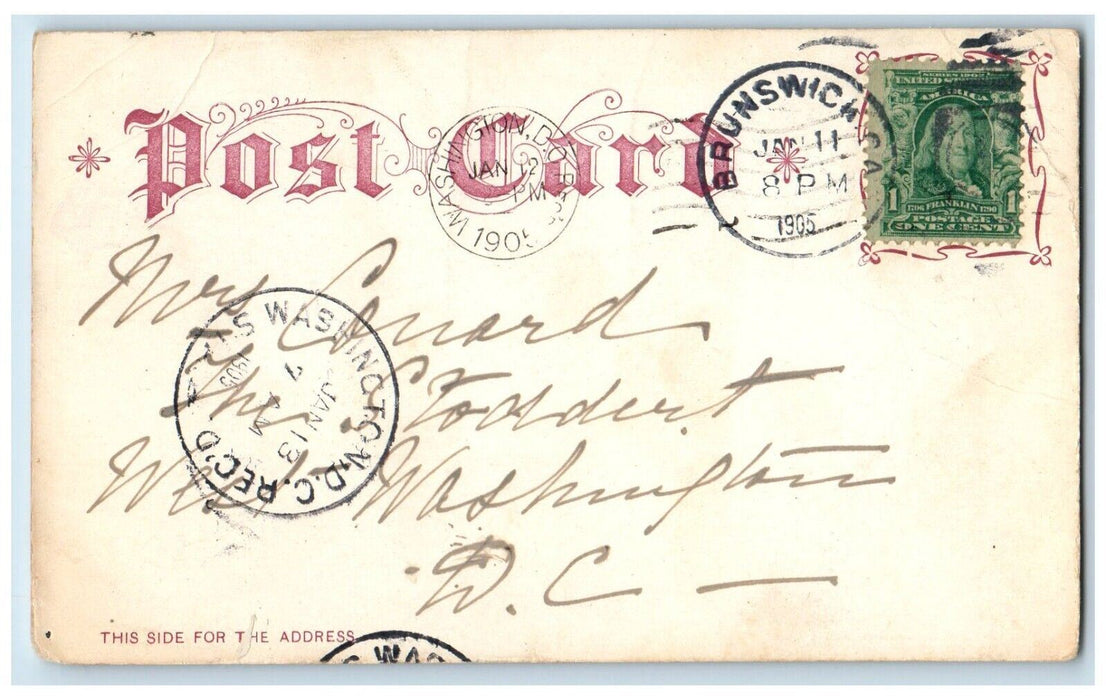 Post Card
WASHINGTON, D.C.
JAN 12
PM
1905
BRUNSWICK, GA.
JAN 11
8 PM
1905
SERIES 1902
UNITED STATES OF
AMERICA
1 1706 FRANKLIN 1790 1
POSTAGE
ONE CENT
Mrs Conard
The Stoddert
West Washington
D.C.
WASHINGTON, D.C. REC'D
JAN 13
7 AM
1905
THIS SIDE FOR THE ADDRESS
S WAS